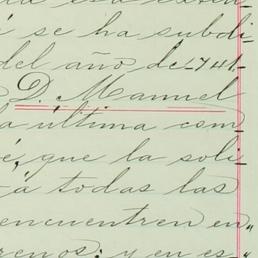 á se ha subdi-
del año de 1741-
D. Manuel
a última com-
é, que la soli-
á todas las
encuentren en"
renos; y en es-